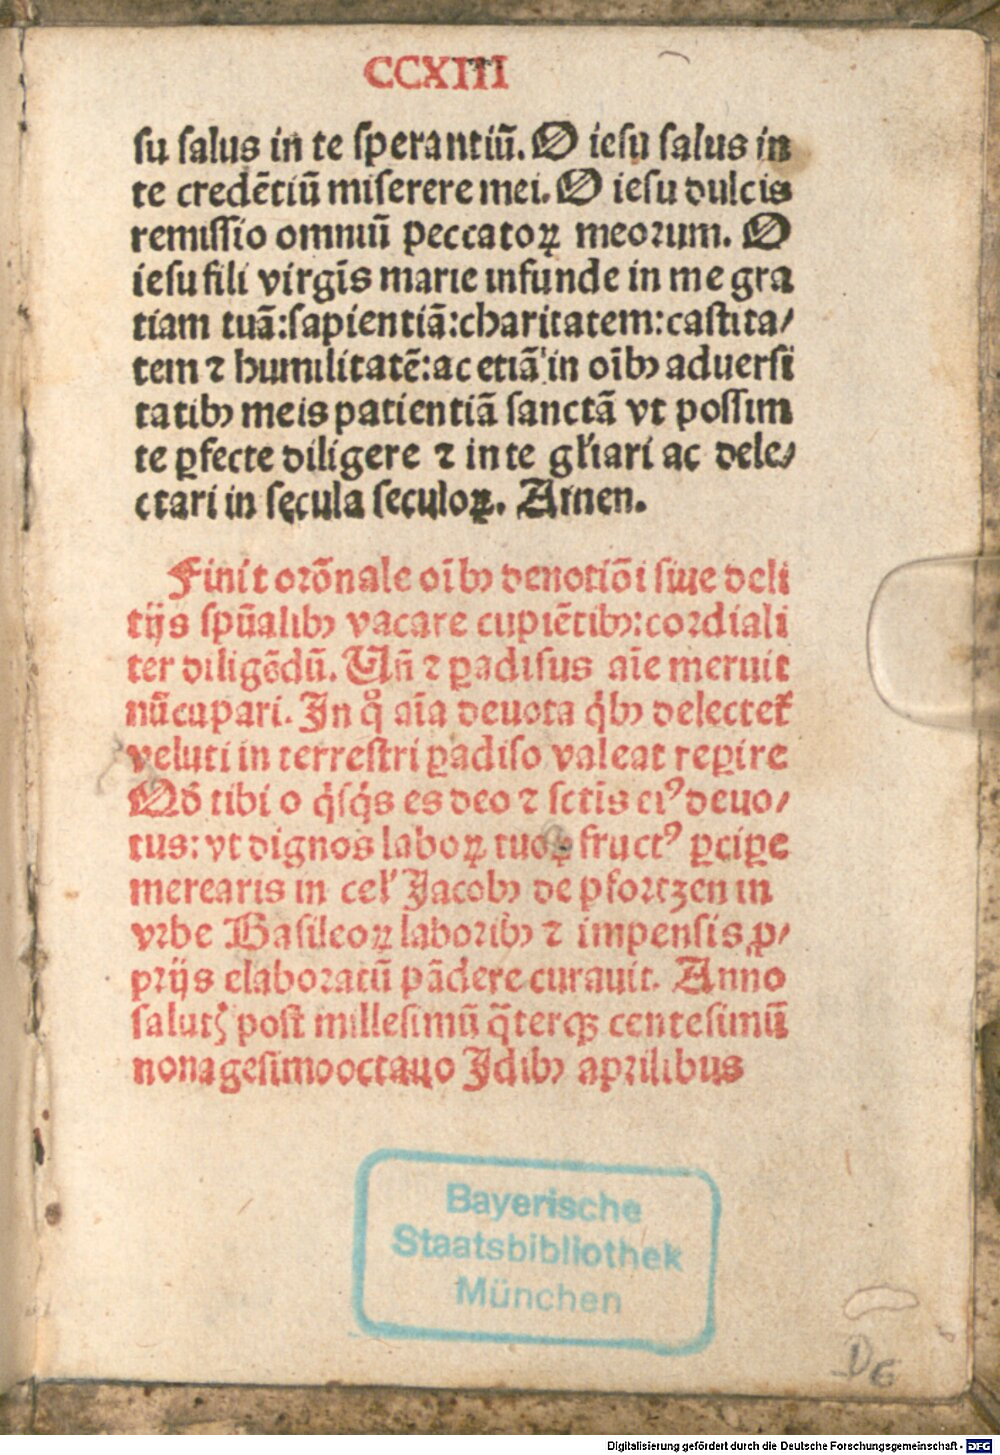 CCXIII
su salus in te sperantiū. O iesu salus in
te credētiū miserere mei. O iesu dulcis
remissio omniū peccatoꝝ meorum. O
iesu fili virgīs marie infunde in me gra
tiam tuā: sapientiā: charitatem: castita/
tem ⁊ humilitatē: ac etiā in oībꝰ aduersi
tatibꝰ meis patientiā sanctā vt possim
te ꝑfecte diligere ⁊ in te gl'iari ac dele/
ctari in secula seculoꝝ. Amen.
Finit orōnale oībꝰ deuotiōi siue deli
tijs spūalibꝰ vacare cupiētibꝰ: cordiali
ter diligēdū. Vñ ⁊ ꝑadisus aīe meruit
nūcupari. In q̊ aīa deuota q̇bꝰ delectet᷑
veluti in terrestri ꝑadiso valeat reꝑire
Qđ tibi o q̇sq̇s es deo ⁊ sctīs eiꝰ deuo/
tus: vt dignos laboꝝ tuoꝝ fructꝰ ꝑciꝑe
merearis in cel' Jacobꝰ de pfortzen in
vrbe Basileoꝝ laboribꝰ ⁊ impensis ꝓ/
prijs elaboratū pādere curauit. Anno
salutꝭ post millesimū q̄terqꝫ centesimū
nonagesimooctauo Idibꝰ aprilibus
Bayerische
Staatsbibliothek
München
D6
Digitalisierung gefördert durch die Deutsche Forschungsgemeinschaft - DFG